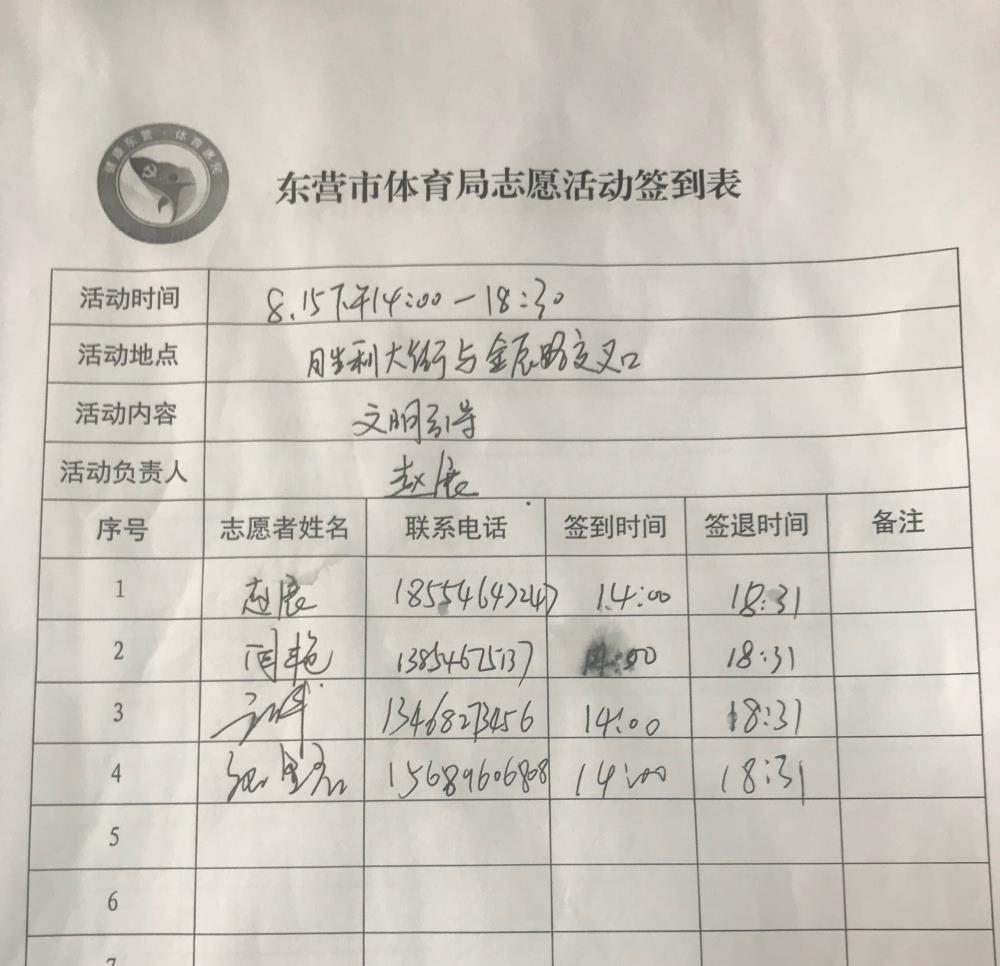 健康东营·体育惠民
东营市体育局志愿活动签到表
活动时间 8.15下午14:00-18:30
活动地点 胜利大街与金辰路交叉口
活动内容 文明引导
活动负责人 赵展
序号 志愿者姓名 联系电话 签到时间 签退时间 备注
1 赵展 18554647247 14:00 18:31
2 闫艳 13854675137 14:00 18:31
3 13468273456 14:00 18:31
4 15689606808 14:00 18:31
5
6
7